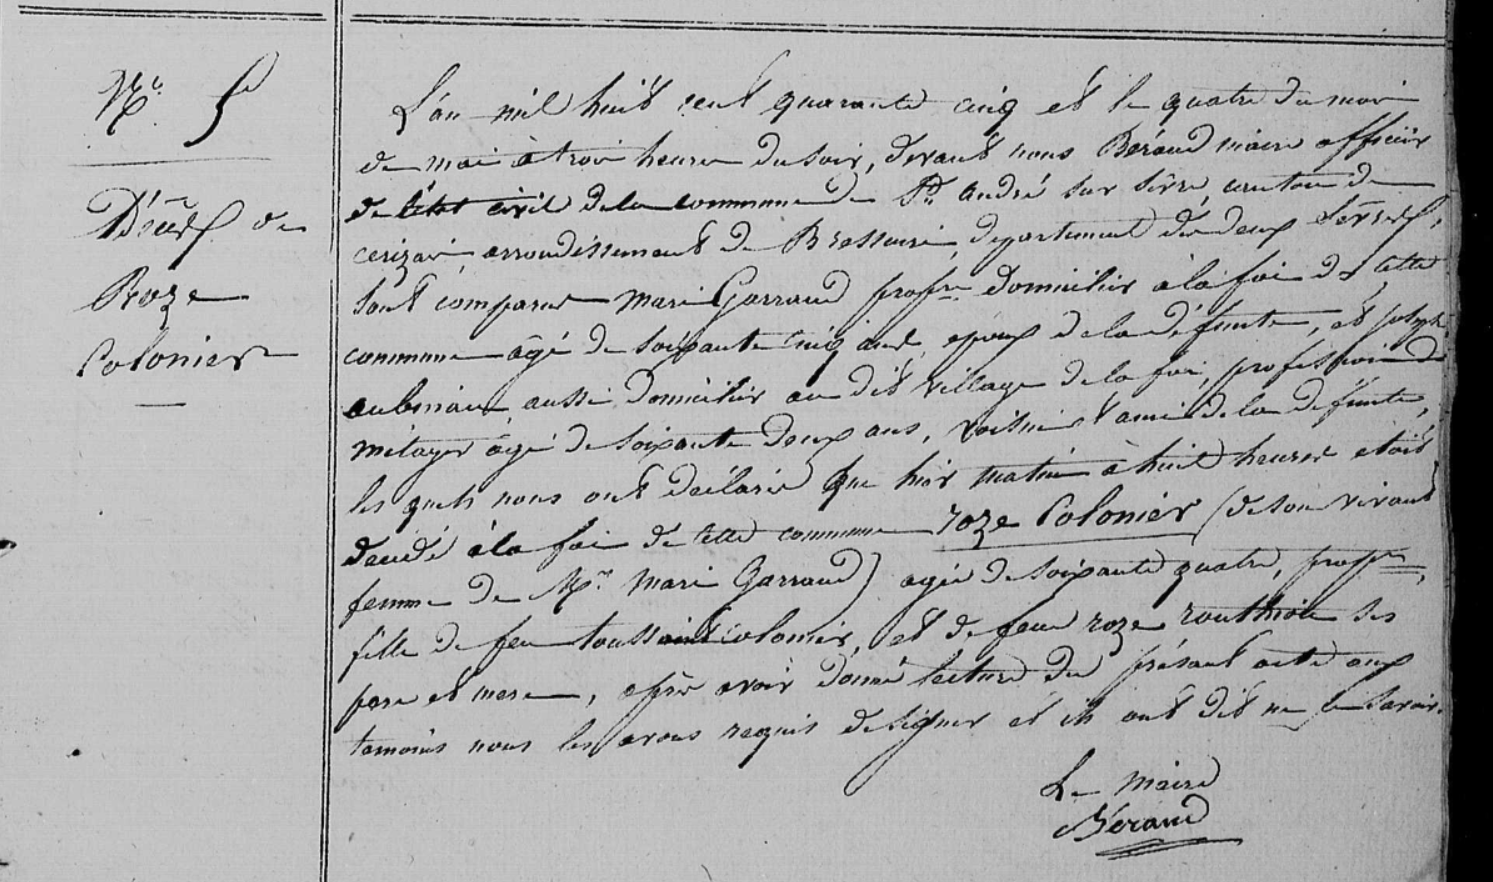 N.º 5
Décès de
Roze
Colonier
L'an mil huit cent quarante cinq et le quatre du moi
de mai à trois heure du soir, devant nous Béraud maire officier
de l'état civil de la commune de St. André sur Sèvre, canton de
cerizai, arrondissement de Bressuire, département des deux Sèvres,
sont comparus Marie Garraud prop.re domicilier à la foi de cette
commune âgé de soixante cinq ans, epoux de la défunte, et joseph
aubineau, aussi domicilier au dit village de la foi, profession de
métayer âgé de soixante deux ans, voisin et ami de la défunte,
les quels nous ont déclarés que hier matin à huit heures etoit
décédé à la foi de cette commune roze Colonier (de son vivant
femme de M.r Marie Garraud) agée de soixante quatre, prop.re,
fille de feu toussaint colonier, et de feue roze routhiau ses
pere et mere, après avoir donné lecture du présent acte aux
temoins nous les avons requis de signer et ils ont dit ne le savoir.
Le Maire
Béraud